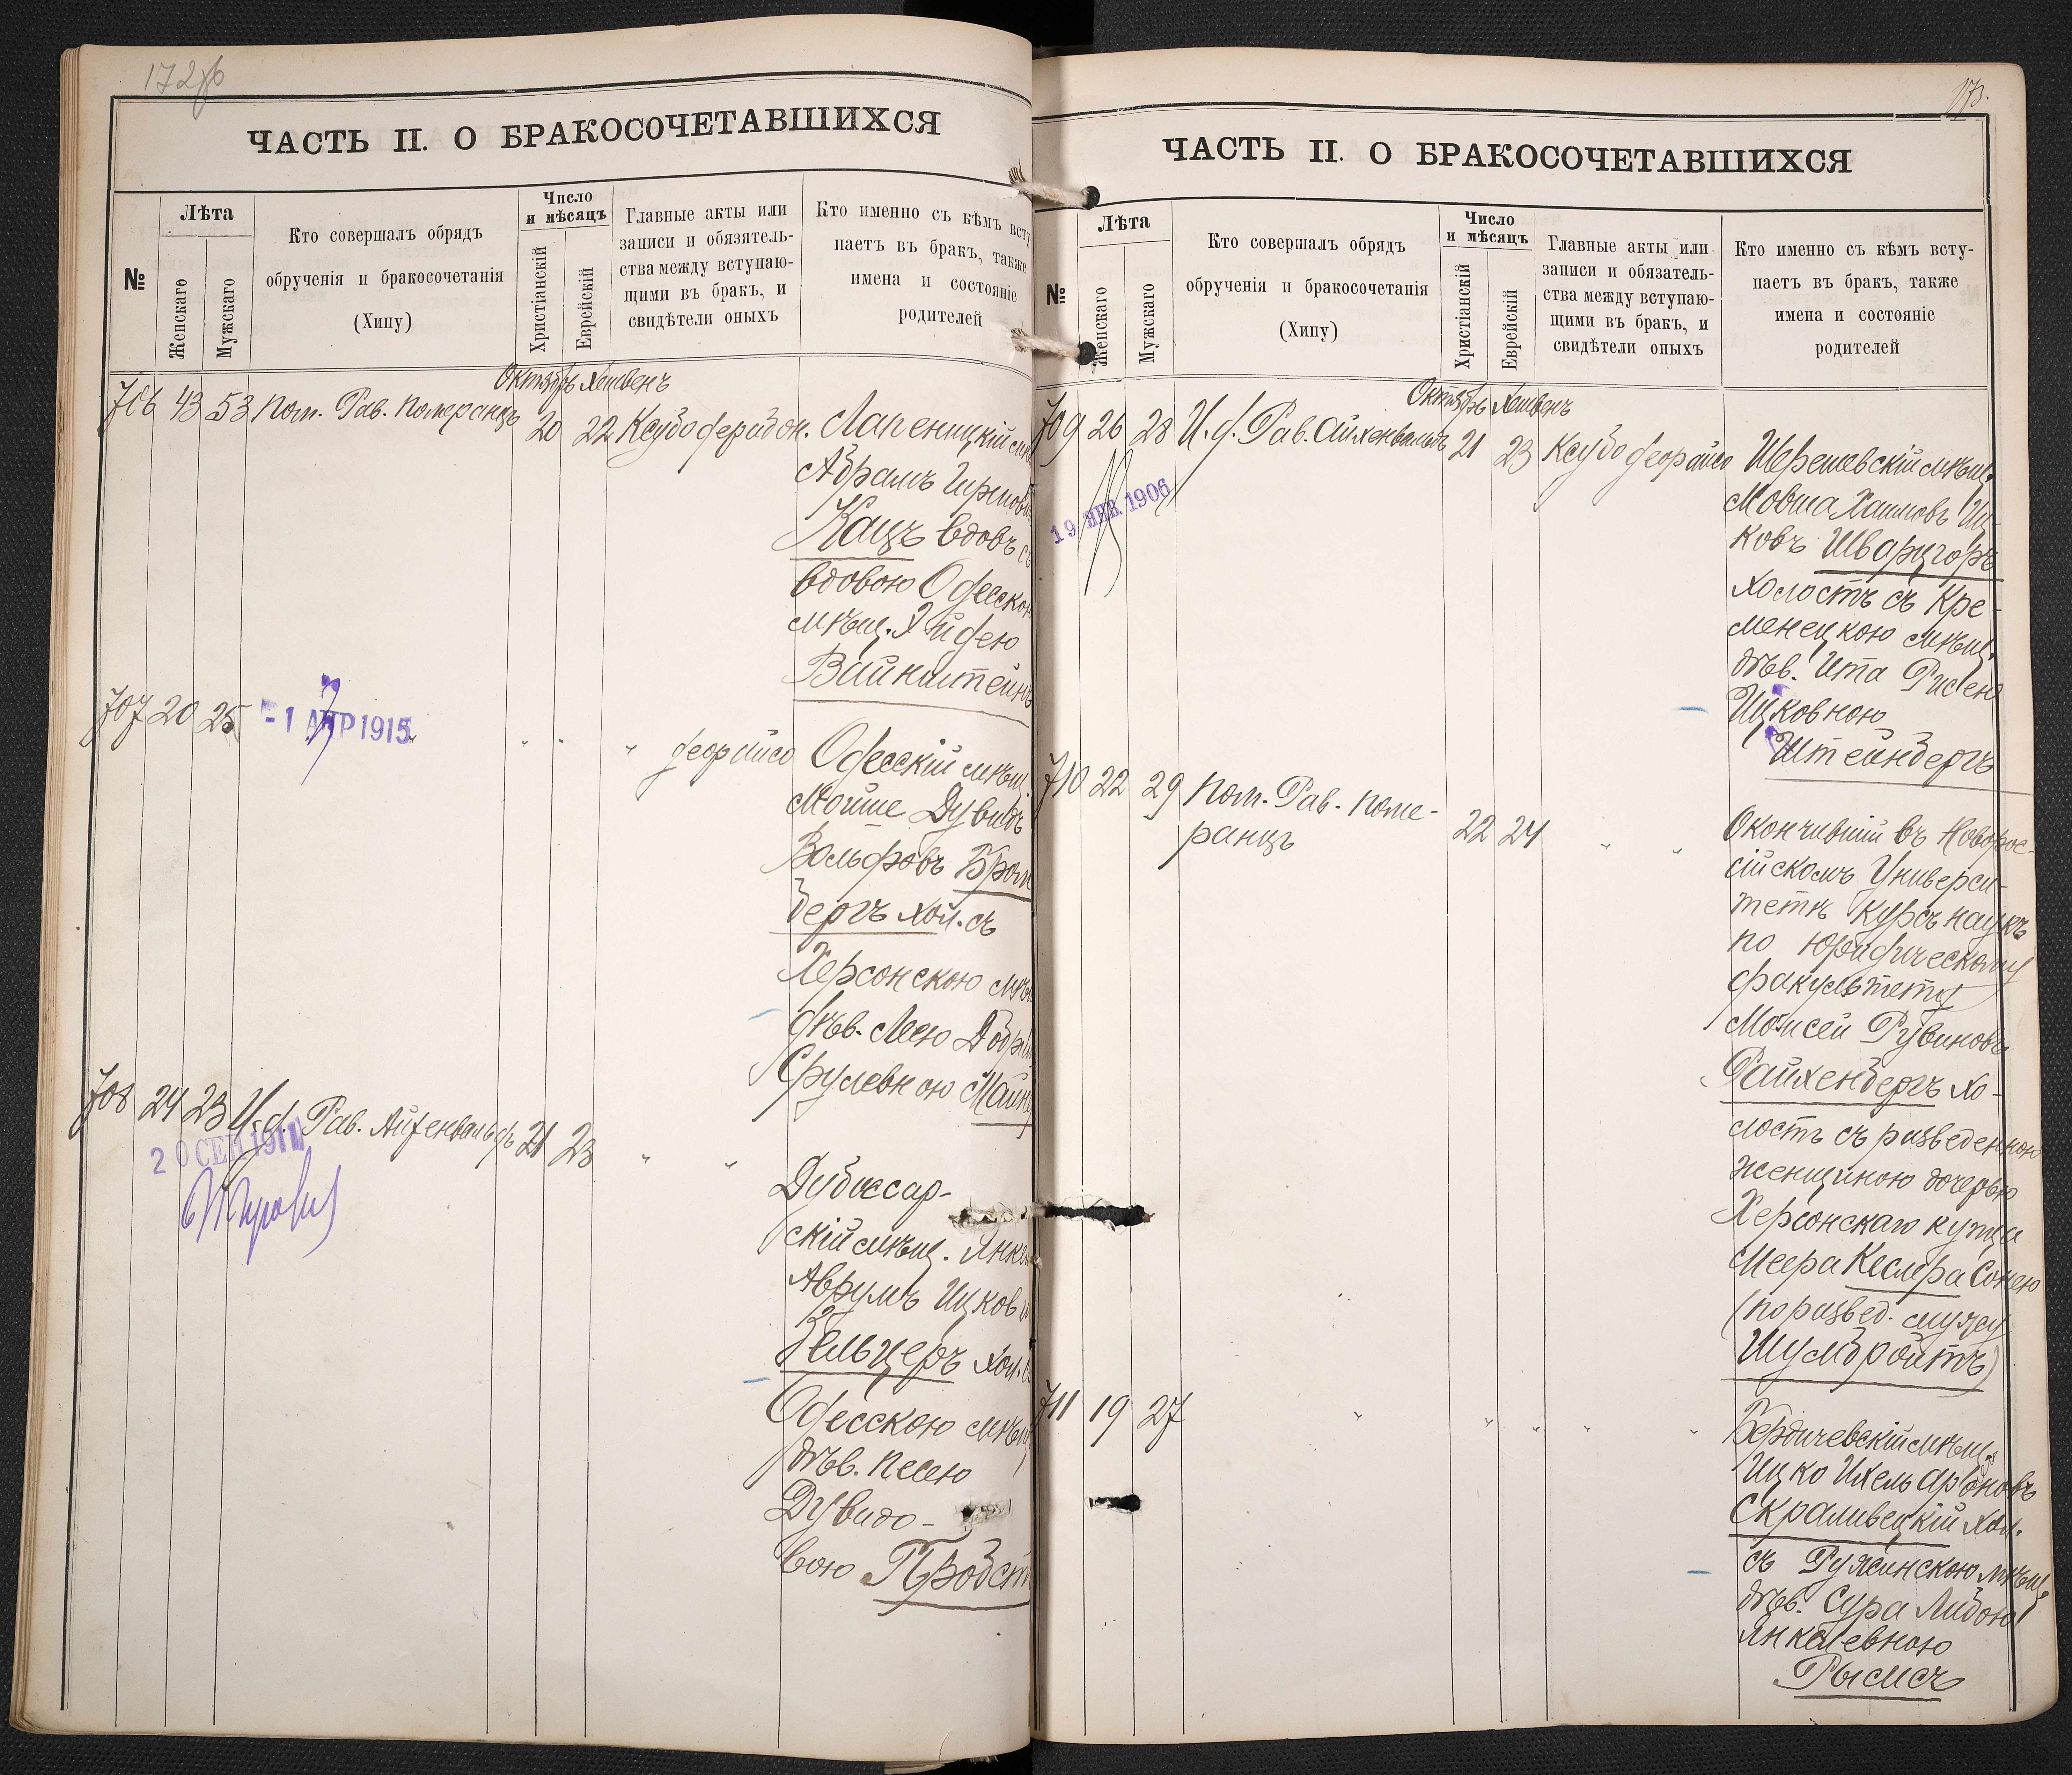 172об
ЧАСТЬ II. О БРАКОСОЧЕТАВШИХСЯ
№
Лѣта
Женскаго
Мужскаго
Кто совершалъ обрядъ
обрученія и бракосочетанія
(Хипу)
Число
и мѣсяцъ
Христіанскій
Еврейскій
Главные акты или
записи и обязятель-
ства между вступаю-
щими въ бракъ, и
свидѣтели оныхъ
Кто именно съ кѣмъ всту-
паетъ въ бракъ, также
имена и состояніе
родителей
Октябрь Хешвенъ
706 43 53 Пом. Рав. Померанцъ 20 22 Ксубо
Абрамъ
Кацъ вдовъ съ
вдовою Одесскою
мѣщ.
Вайнштейнъ
707 20 25 " " " " феорайсо Одесскій мѣщ.
-1 АПР 1915
Мойше Дувидъ
Вольфовъ Бром
бергъ хол. съ
Херсонскою мѣщ
дѣв. Леею
Срулевною
708 24 23 И.д. Рав. Айхенвальдъ 21 23 " "
20 СЕН 1911
Дубоссар-
скій мѣщ.
Аврумъ Ицков
Зельцеръ хол. съ
Одесскою мѣщ
дѣв. Песею
Дувидо-
вою Бродст
173.
ЧАСТЬ II. О БРАКОСОЧЕТАВШИХСЯ
№
Лѣта
Женскаго
Мужскаго
Кто совершалъ обрядъ
обрученія и бракосочетанія
(Хипу)
Число
и мѣсяцъ
Христіанскій
Еврейскій
Главные акты или
записи и обязатель-
ства между вступаю-
щими въ бракъ, и
свидѣтели оныхъ
Кто именно съ кѣмъ всту-
паетъ въ бракъ, также
имена и состояніе
родителей
Октябрь Хешвенъ
709 26 28 И.д. Рав. Айхенвальдъ 21 23 Ксубо феорайсо Шерешевскій мѣщ.
19 ЯНВ. 1906
Мовша Хаимовъ Иц-
ковъ Шварцгоръ
холостъ съ Кре-
менецкою мѣщ.
дѣв. Ита Рисею
Ицковною
Штейнбергъ
710 22 29 Пом. Рав. Поме-
ранцъ 22 24 " "
Окончившій въ Новорос-
сійскомъ Универси-
тетѣ курсъ наукъ
по юридическому
факультету
Моисей Рувиновъ
Райхенбергъ хо-
лостъ съ разведенною
женщиною дочерью
Херсонскаго купца
Меера Кеслера Сонею
(по развед. мужу
Шумбройтъ)
711 19 27 " " " " "
Бердичевскій мѣщ.
Ицко Ихель Ароновъ
Скраливецкій хол.
съ Ружинскою мѣщ.
дѣв. Сура Либою
Янкелевною
Рымсъ